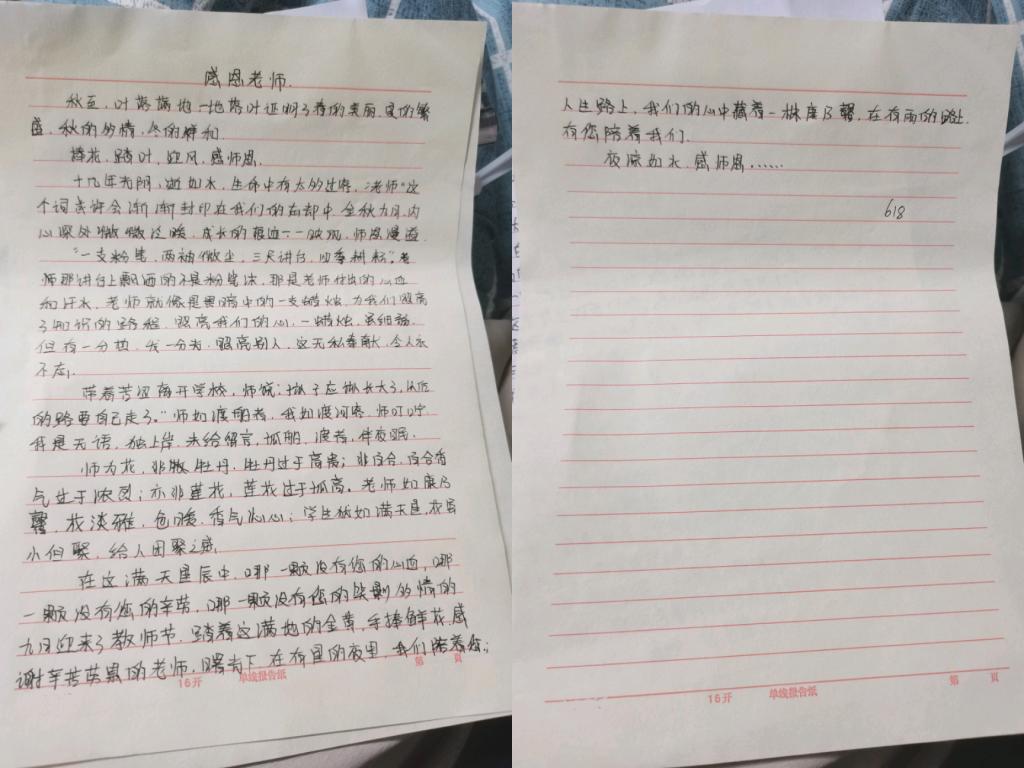 感恩老师.
秋至，叶落满地，一地落叶证明了春的美丽，夏的繁
盛，秋的多情，冬的鲜和.
捧花，踏叶，迎风，感师恩.
十几年光阴，逝如水，生命中有太的过客，“老师”这
个词语许会渐渐封印在我们的石却中，金秋九月，内
心深处微微泛暖，成长的痕迹一一映现，师恩漫道.
“一支粉笔，两袖微尘，三尺讲台，四季耕耘”. 老
师那讲台上飘洒的不是粉笔沫，那是老师付出的心血
和汗水，老师就像是黑暗中的一支蜡烛，为我们照亮
了知识的路程，照亮我们的心，一蜡烛，虽细弱，
但有一分热，发一分光，照亮别人，这无私奉献，令人永
不忘.
带着苦涩离开学校，师说：孤子应孤长大了，以后
的路要自己走了。”师如渡船者，我如渡河客，师叮咛
我是无语，独上岸，未给留言，孤船，渡者，伴夜眠.
师为花，非像牡丹，牡丹过于高贵；非百合，百合香
气过于浓烈；亦非莲花，莲花过于孤高。老师如康乃
馨，花淡雅，色暖，香气沁心；学生犹如满天星，花虽
小但聚，给人团聚之感.
在这满天星辰中，哪一颗没有您的心血，哪
一颗没有您的辛劳，哪一颗没有您的
九月迎来了教师节，踏着这满地的金黄，手捧鲜花，感
谢辛苦劳累的老师，曙光下，在有星的夜里，我们陪着您；
16开 单线报告纸 第 页
人生路上，我们的心中藏着一株康乃馨，在有雨的路上
有您陪着我们.
夜凉如水，感师恩……
618
16开 单线报告纸 第 页